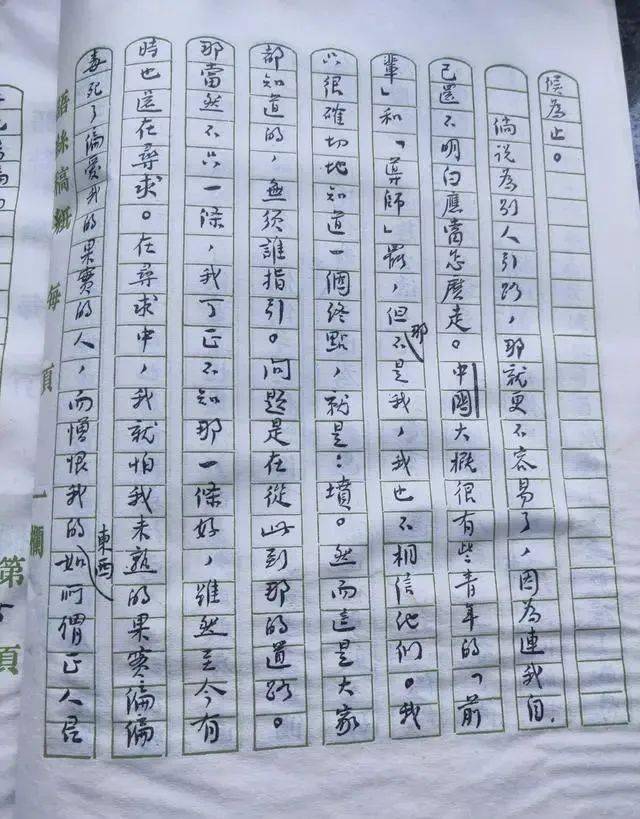 候為止。
倘说為别人引路，那就更不容易了，因為連我自
己還不明白應當怎麽走。中國大概很有些青年的「前
輩」和「導師」罷，但那不是我，我也不相信他們。我
只很確切地知道一個終點，就是：墳。然而這是大家
都知道的，無須誰指引。问題是在從此到那的道路。
那當然不只一條，我可正不知那一條好，雖然至今有
時也還在尋求。在尋求中，我就怕我未熟的果實偏偏
毒死了偏愛我的果實的人，而憎恨我的東西如所謂正人君
語絲稿紙 每頁一欄
第 頁